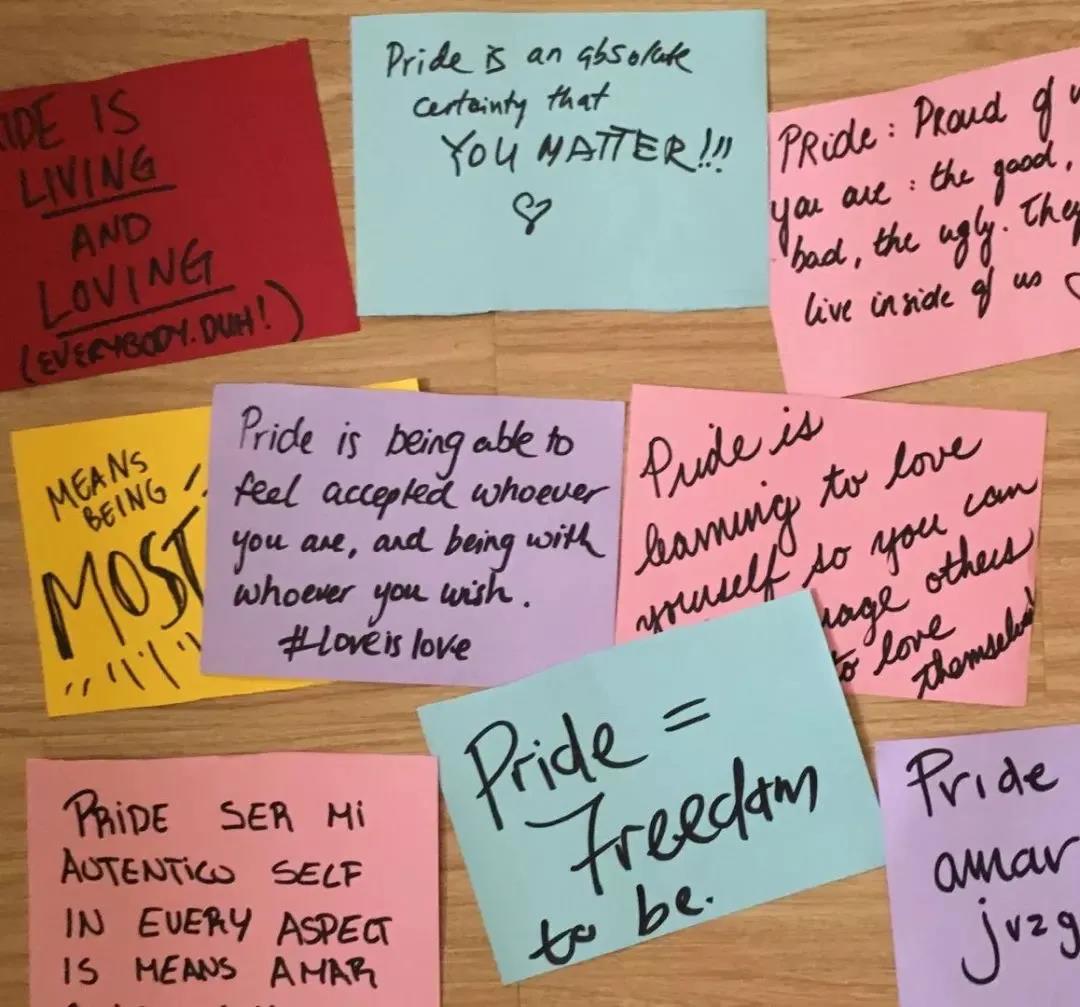 IDE IS
LIVING
AND
LOVING
(EVERYBODY. DUH!)
Pride is an absolute
certainty that
YOU MATTER!!!
PRide: PRoud of
you are: the good,
bad, the ugly. They
live inside of us
MEANS
BEING
MOST
Pride is being able to
feel accepted whoever
you are, and being with
whoever you wish.
#Love is love
Pride is
learning to love
yourself so you can
uage others
to love
themselves
Pride =
Freedom
to be.
PRIDE SER MI
AUTENTICO SELF
IN EVERY ASPECT
IS MEANS AMAR
Pride
amar
jvzg